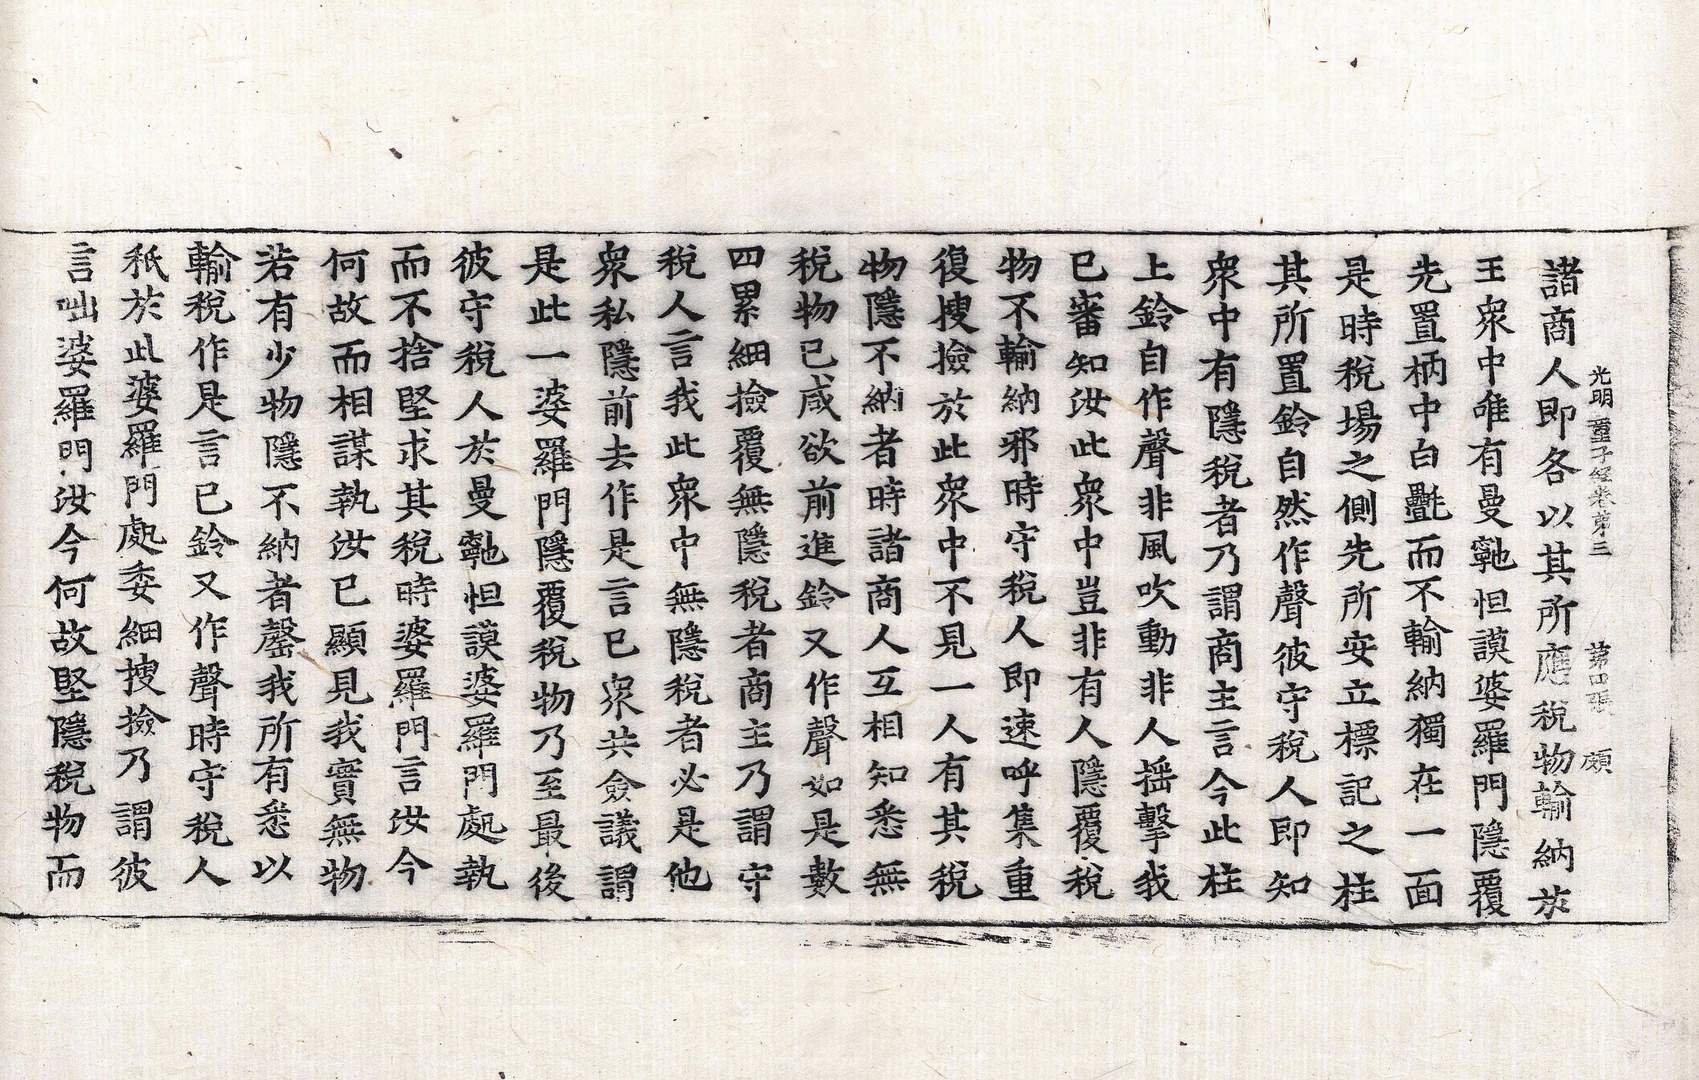 光明童子經卷第三 第四張 頗
諸商人即各以其所應稅物輸納於
王衆中唯有曼𠆙怛謨婆羅門隱覆
先置柄中白㲲而不輸納獨在一面
是時稅場之側先所安立標記之柱
其所置鈴自然作聲彼守稅人即知
衆中有隱稅者乃謂商主言今此柱
上鈴自作聲非風吹動非人揺擊我
已審知汝此衆中豈非有人隱覆稅
物不輸納邪時守稅人即速呼集重
復搜撿於此衆中不見一人有其稅
物隱不納者時諸商人互相知悉無
稅物已咸欲前進鈴又作聲如是數
四累細撿覆無隱稅者商主乃謂守
稅人言我此衆中無隱稅者必是他
衆私隱前去作是言已衆共僉議謂
是此一婆羅門隱覆稅物乃至最後
彼守稅人於曼𠆙怛謨婆羅門處執
而不捨堅求其稅時婆羅門言汝今
何故而相謀執汝已顯見我實無物
若有少物隱不納者罄我所有悉以
輸稅作是言已鈴又作聲時守稅人
秖於此婆羅門處委細搜撿乃謂彼
言咄婆羅門汝今何故堅隱稅物而